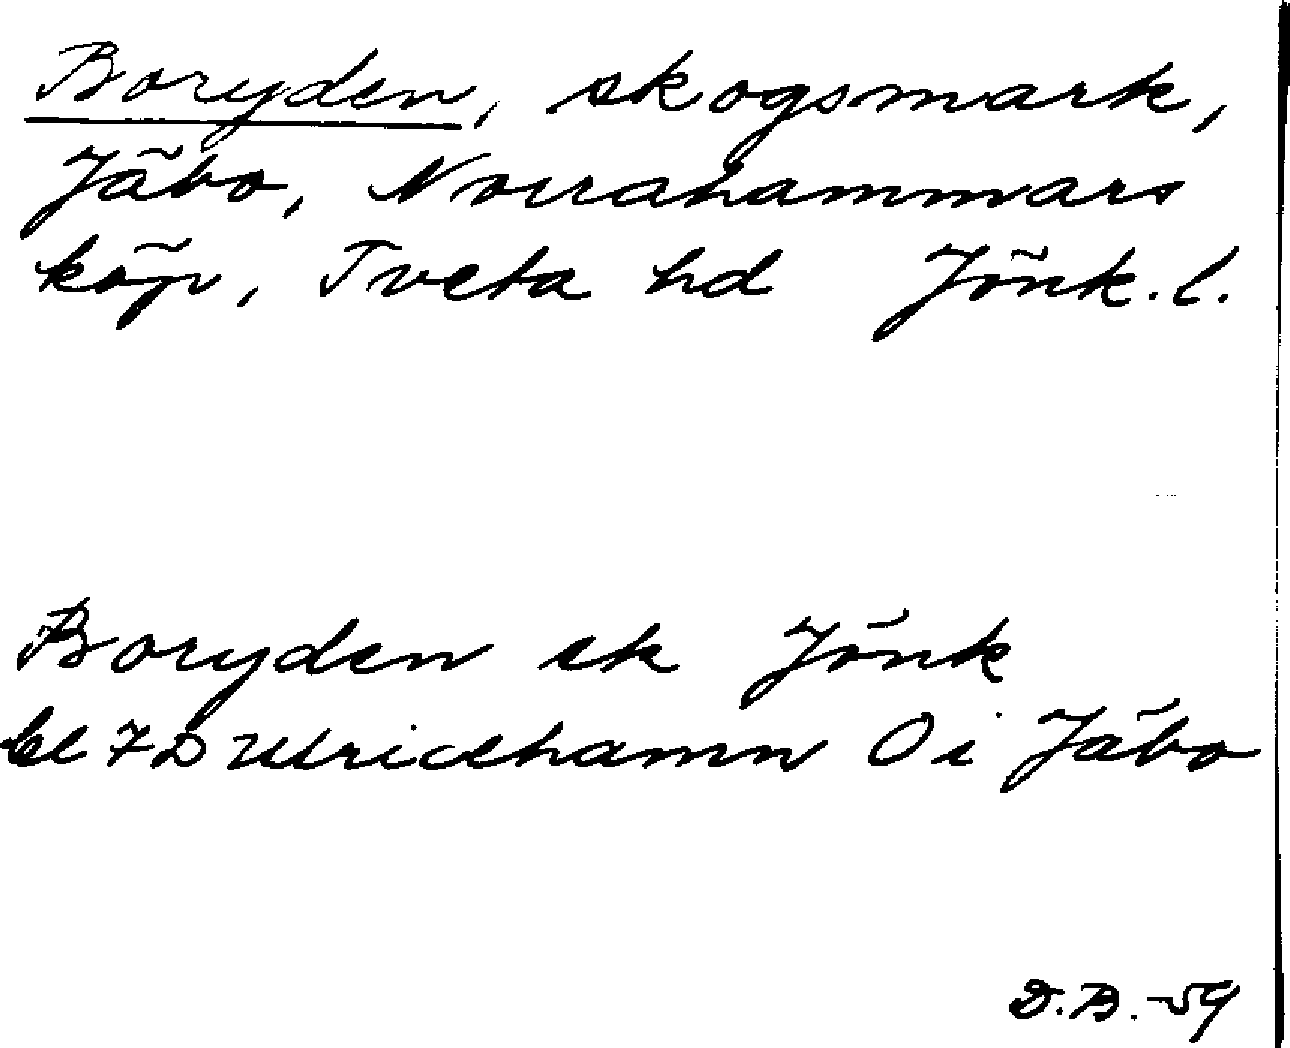 Boryden, skogsmark,
Jäbo, Norrahammars
köp, Tveta hd Jönk. l.
Boryden sk Jönk
bl 7D Ulricehamn Ö i Jäbo
D.B.-59